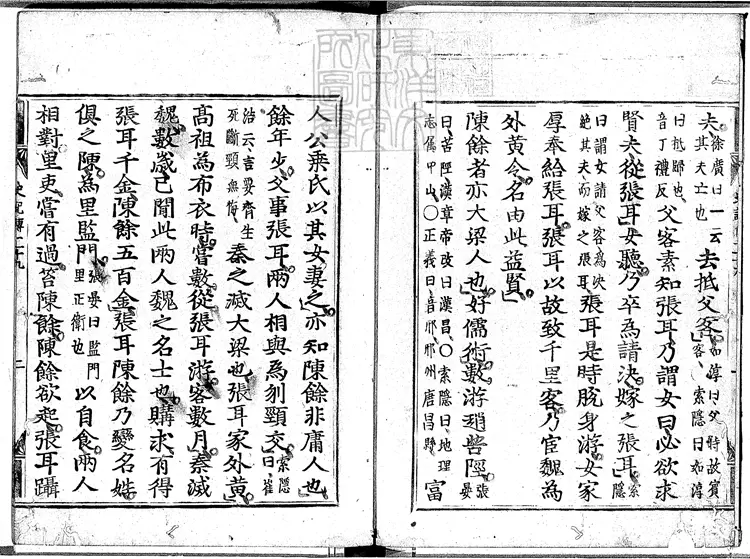 夫徐廣曰一云其夫亡也去抵父客如淳曰父時故賓客○索隱曰如淳
曰抵歸也音丁禮反父客素知張耳乃謂女曰必欲求
賢夫從張耳女聽乃卒為請決嫁之張耳索隱
曰謂女請父客為決絶其夫而嫁之張耳張耳是時脫身游女家
厚奉給張耳張耳以故致千里客乃宦魏為
外黄令名由此益賢
陳餘者亦大梁人也好儒術數游趙苦陘張晏
曰苦陘漢章帝改曰漢昌○索隱曰地理志屬中山○正義曰音邢邢州唐昌縣富
人公乘氏以其女妻之亦知陳餘非庸人也
餘年少父事張耳兩人相與為刎頸交索隱曰崔
浩云言要齊生死斷頸無悔秦之滅大梁也張耳家外黄
高祖為布衣時嘗數從張耳游客數月秦滅
魏數歲已聞此兩人魏之名士也購求有得
張耳千金陳餘五百金張耳陳餘乃變名姓
俱之陳為里監門張晏曰監門里正衛也以自食兩人
相對里吏嘗有過笞陳餘陳餘欲起張耳躡
史記傳二十九 二